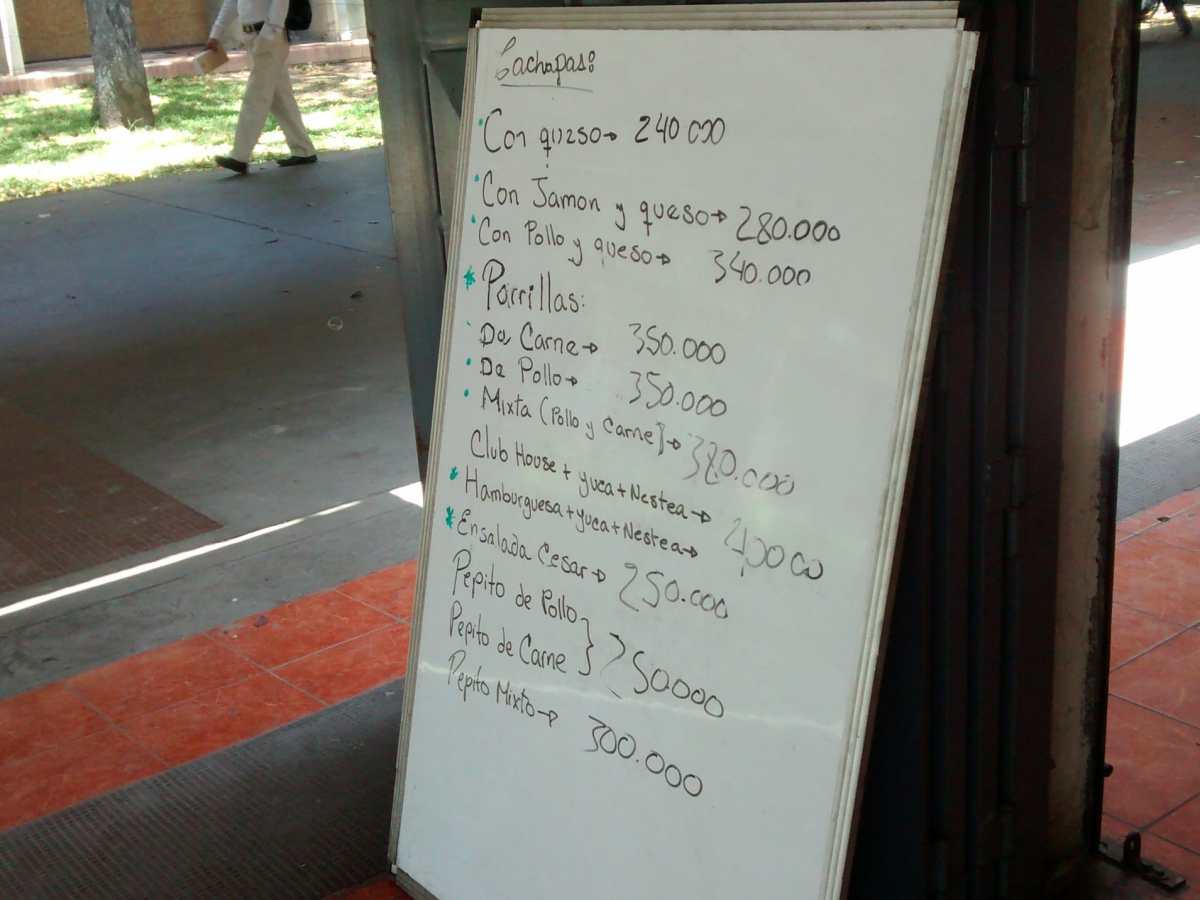 Cachapas:
Con queso→ 240 000
Con Jamon y queso→ 280.000
Con Pollo y queso→ 340.000
* Parrillas:
De Carne→ 350.000
De Pollo→ 350.000
Mixta (Pollo y Carne)→ 380.000
Club House + yuca + Nestea→
Hamburguesa + yuca + Nestea→
Ensalada Cesar→ 250.000
Pepito de Pollo
Pepito de Carne } 250000
Pepito Mixto→ 300.000